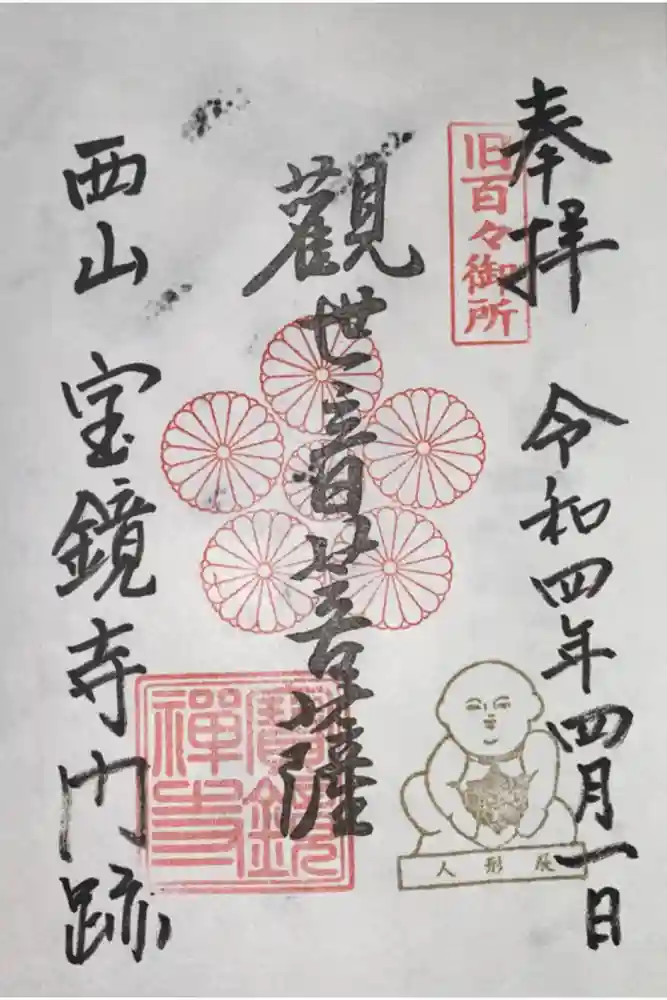 奉拝
令和四年四月一日
旧百々御所
觀世音菩薩
西山
宝鏡寺門跡
寶鏡
禪寺
人形展